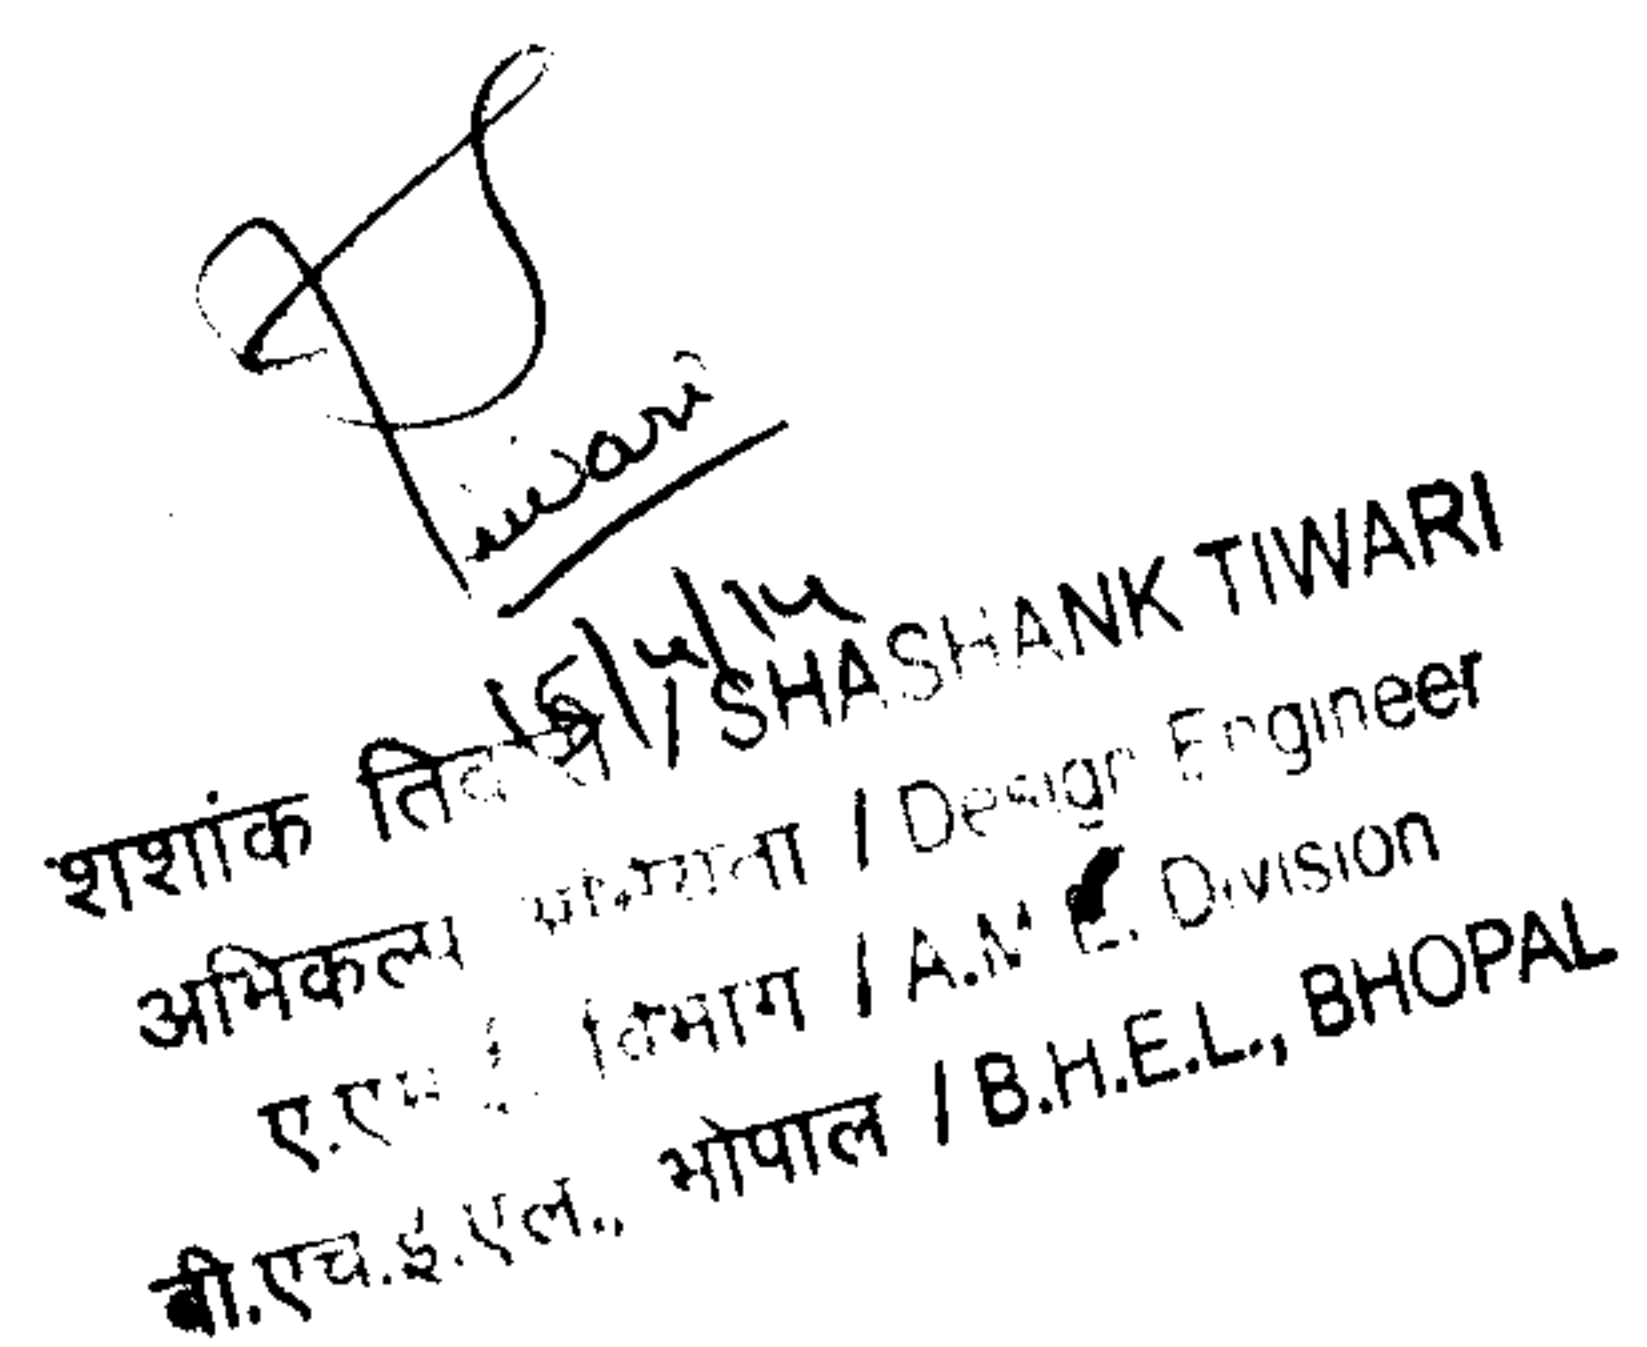 Tiwari
शशांक तिवारी / SHASHANK TIWARI
अभिकल्प अभियन्ता / Design Engineer
ए.एम.ई. विभाग / A.M.E. Division
बी.एच.ई.एल., भोपाल / B.H.E.L., BHOPAL